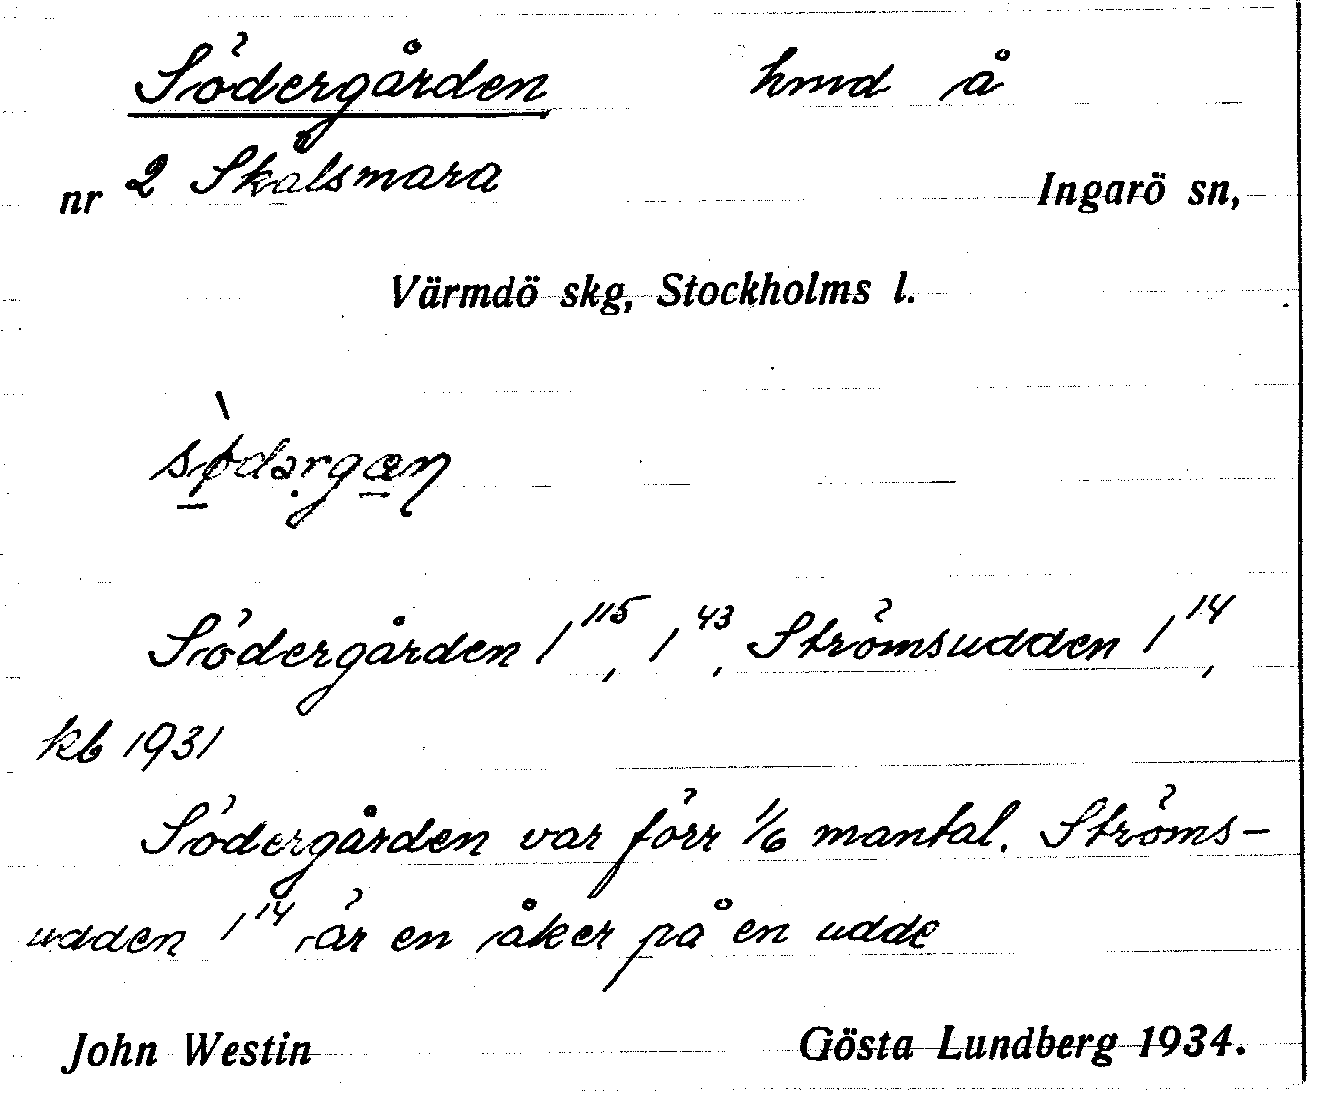 Södergården hmd å
nr 2 Skålsmara Ingarö sn,
Värmdö skg, Stockholms l.
sø̀dərgæn
Södergården 1¹¹⁵, 1⁴³, Strömsudden 1¹⁴,
kb 1931
Södergården var förr 1/6 mantal. Ströms-
udden 1¹⁴ är en åker på en udde
John Westin Gösta Lundberg 1934.